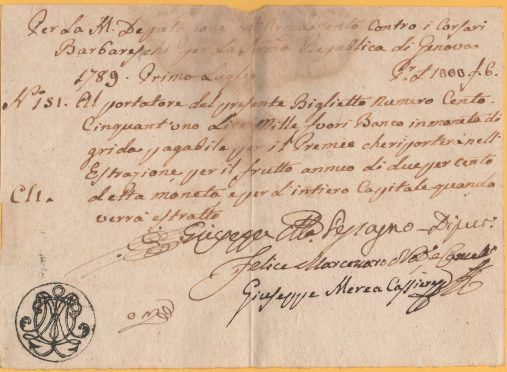 Per La Ill. Deputazione all'Armamento Contro i Corsari
Barbareschi per La Ser.ma Republica di Genova
1789. Primo Luglio Per £ 1000 f. b.
N.o 151. Al portatore del presente Biglietto Numero Cento
Cinquant'uno Lire Mille fuori Banco in moneta di
grida pagabile per il Premio che riporterà nell'
Estrazione per il frutto annuo di due per cento
CLI. detta moneta e per l'intiero Capitale quando
verrà estratto
Giuseppe Lta Pessagno Deput.
Felice Marcenaro
Giuseppe Merea Cassiere